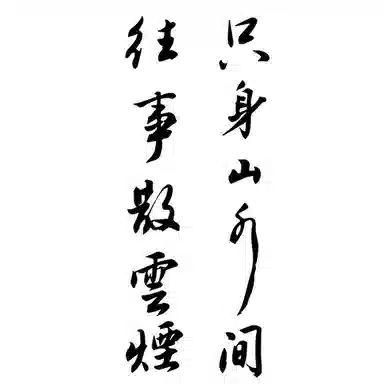 只身山水间
往事散雲煙